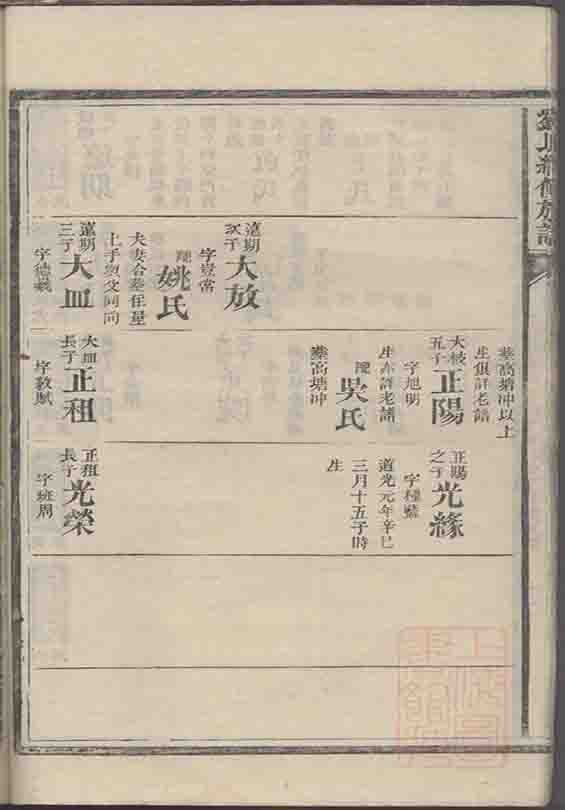 遠期
次子
大放
字豈常
姚氏
夫妻合葬任量
上手與父同向
遠期
三子
大皿
字德羲
葬高塘冲以上
生俱詳老譜
大
五子
正陽
字旭明
生亦詳老譜
吳氏
葬高塘冲
大皿
長子
正租
字敎賦
正陽
之子
光緣
字種藍
道光元年辛巳
三月十五子時
生
正租
長子
光榮
字班周